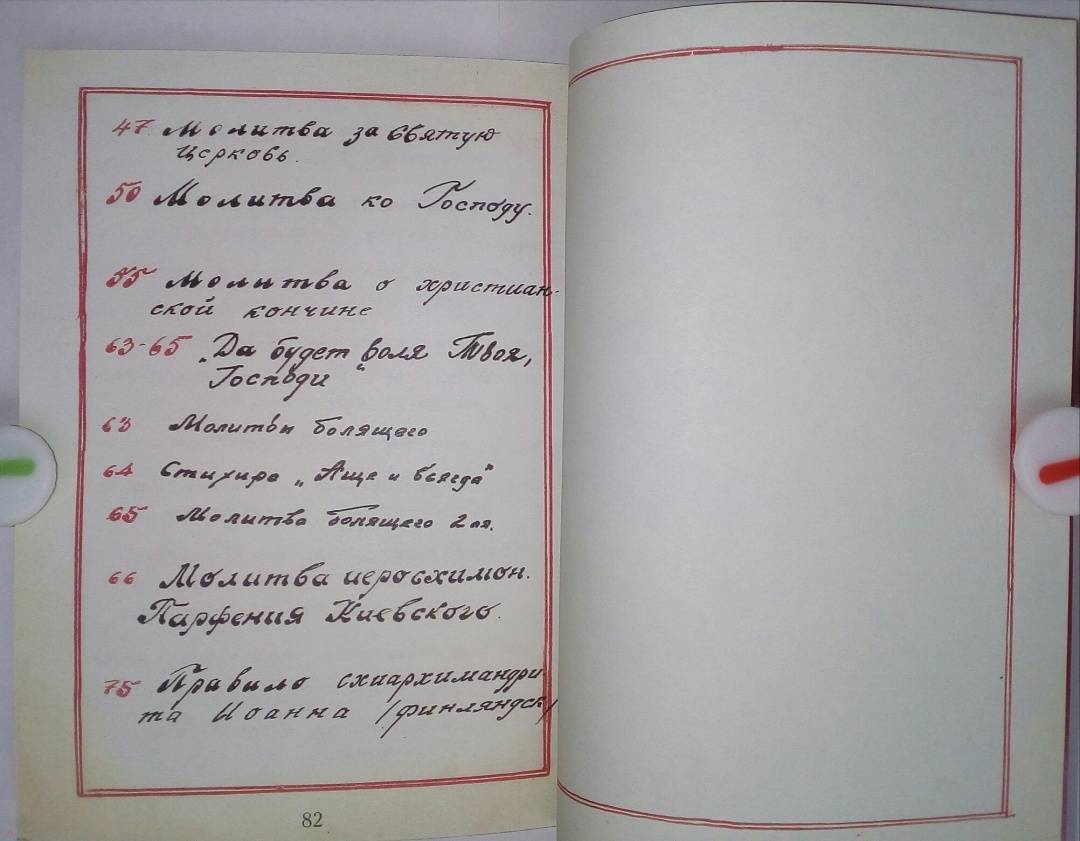 47 Молитва за Святую
Церковь.
50 Молитва ко Господу.
55 Молитва о христиан-
ской кончине
63-65 „Да будет воля Твоя,
Господи“
63 Молитвы болящего
64 Стихира „Аще и всегда“
65 Молитва болящего 2ая.
66 Молитва иеросхимон.
Парфения Киевского.
75 Правило схиархимандри
та Иоанна /финляндск/
82